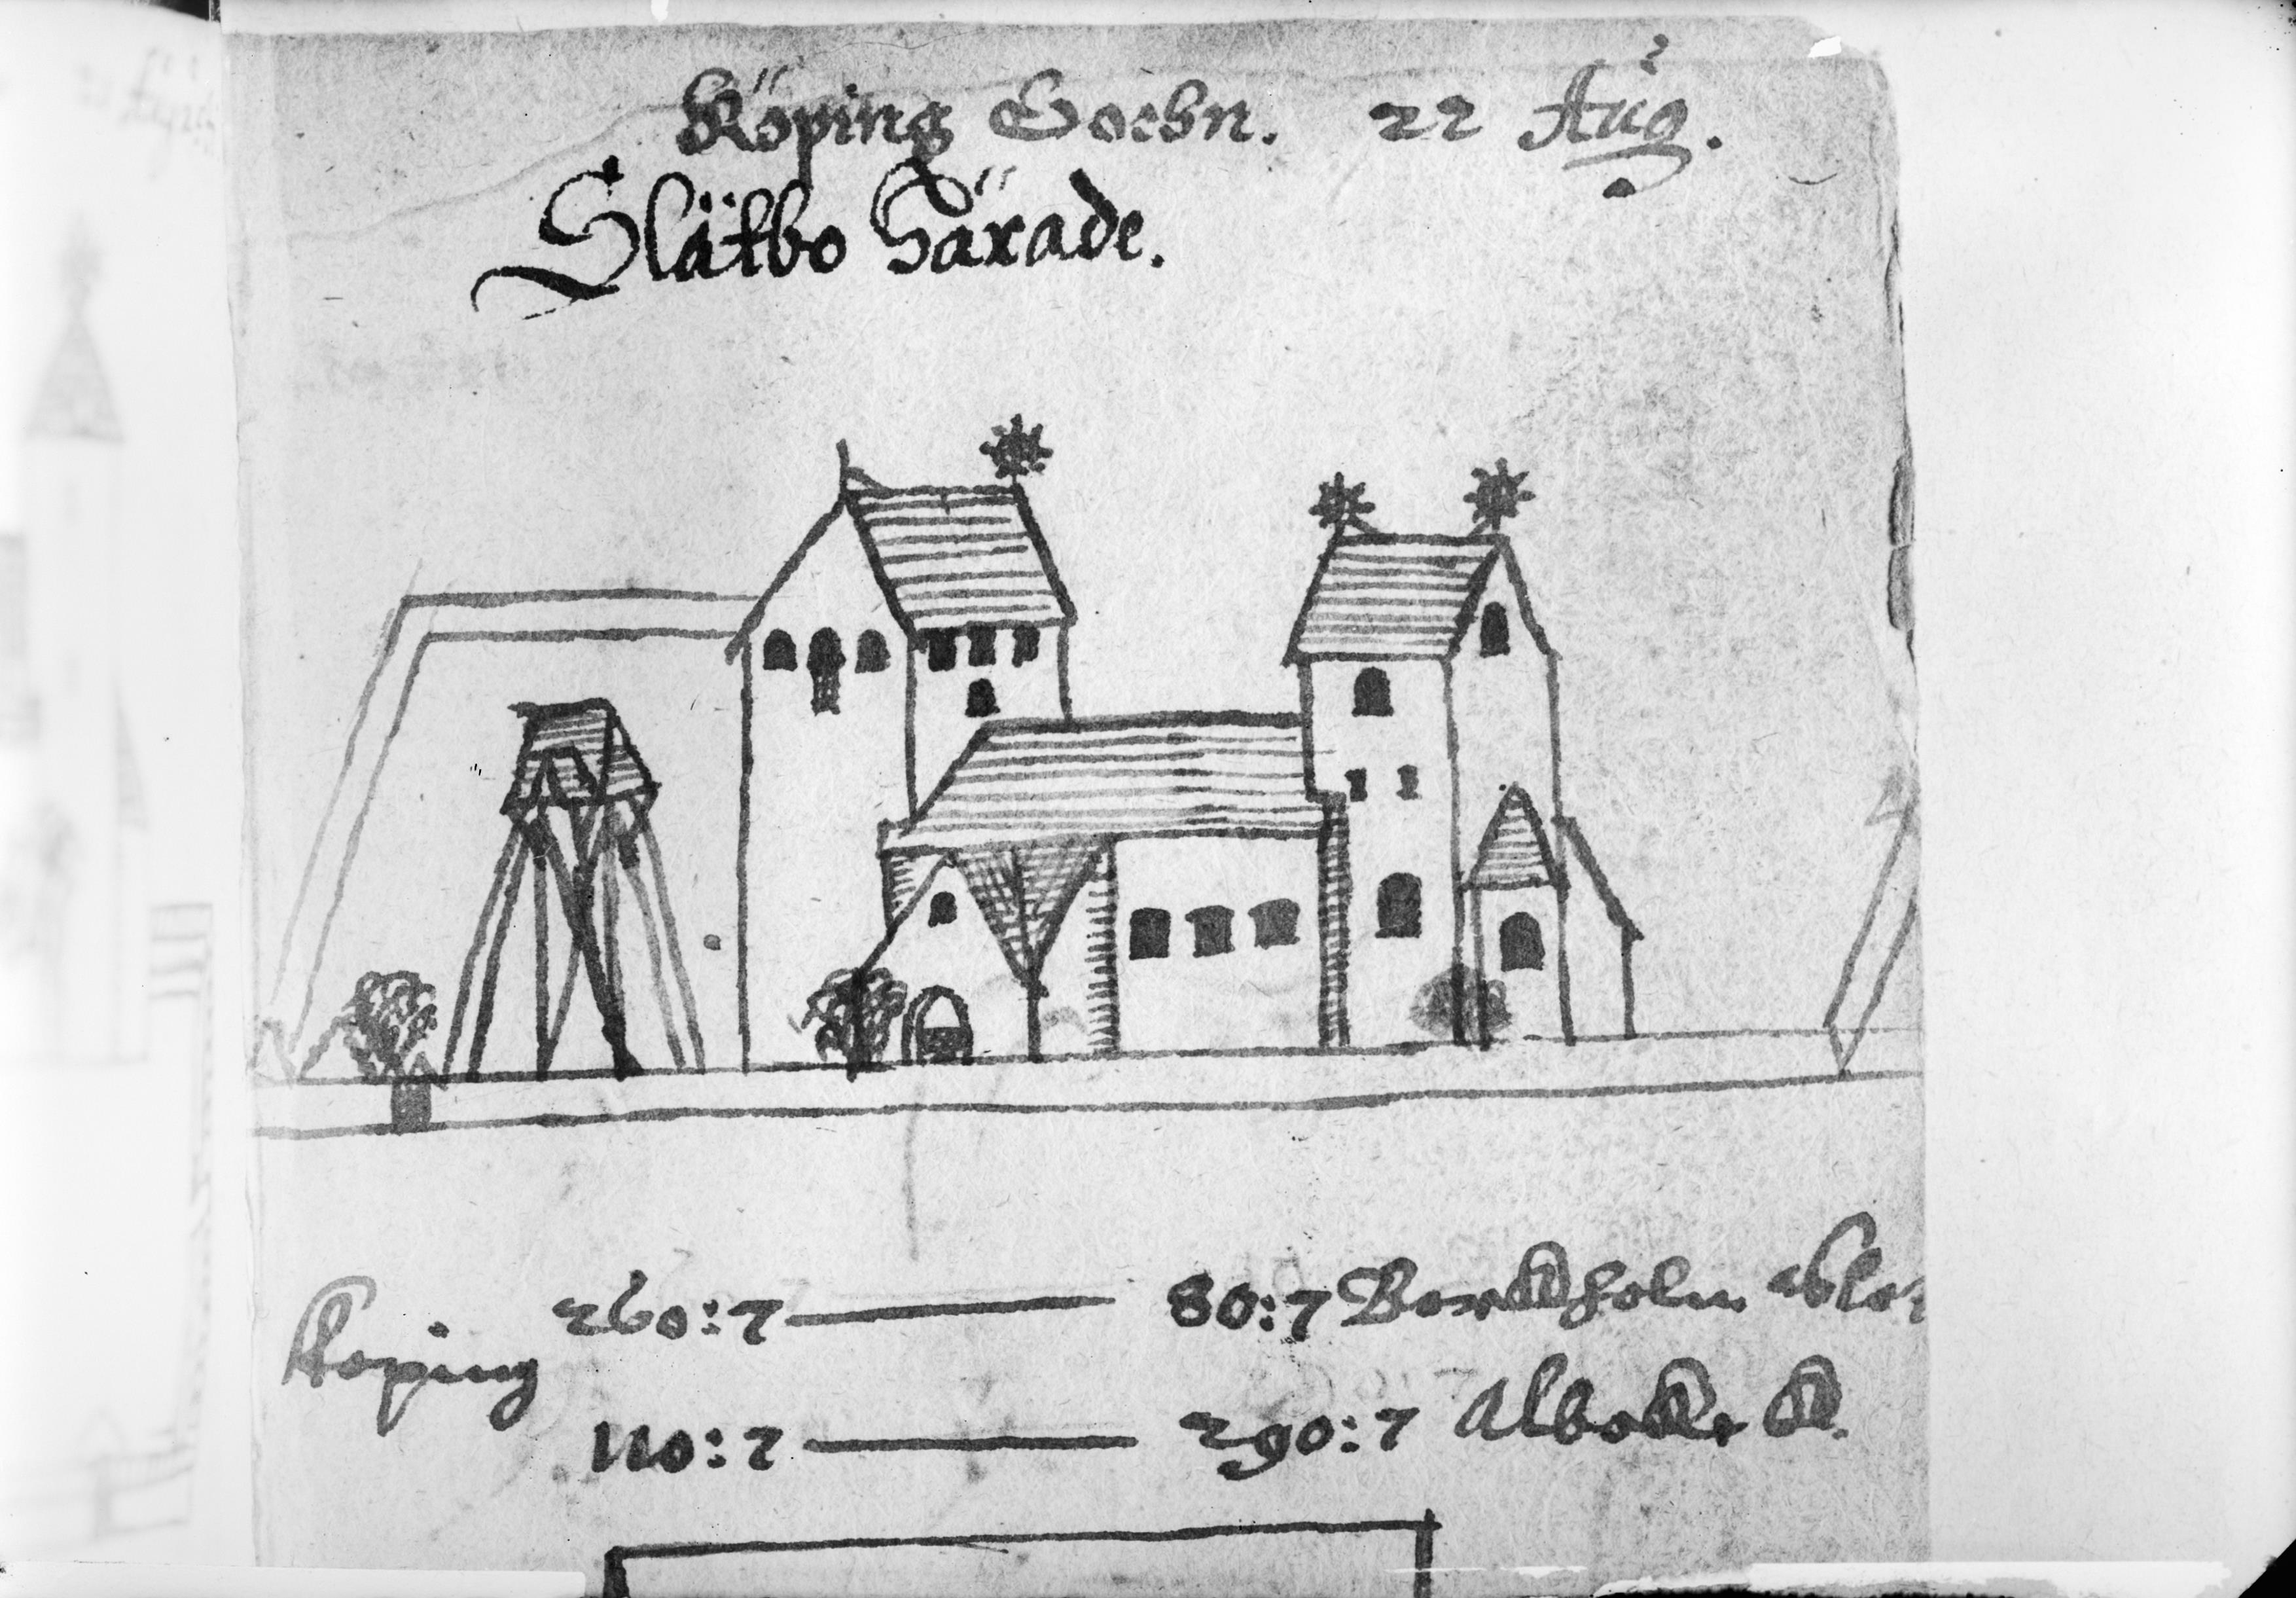 Köping Sochn. 22 Aug.
Slätbo Härade.
Köping
260:7 — 80:7 Borckholm slo
110:7 — 290:7 Alboke k.